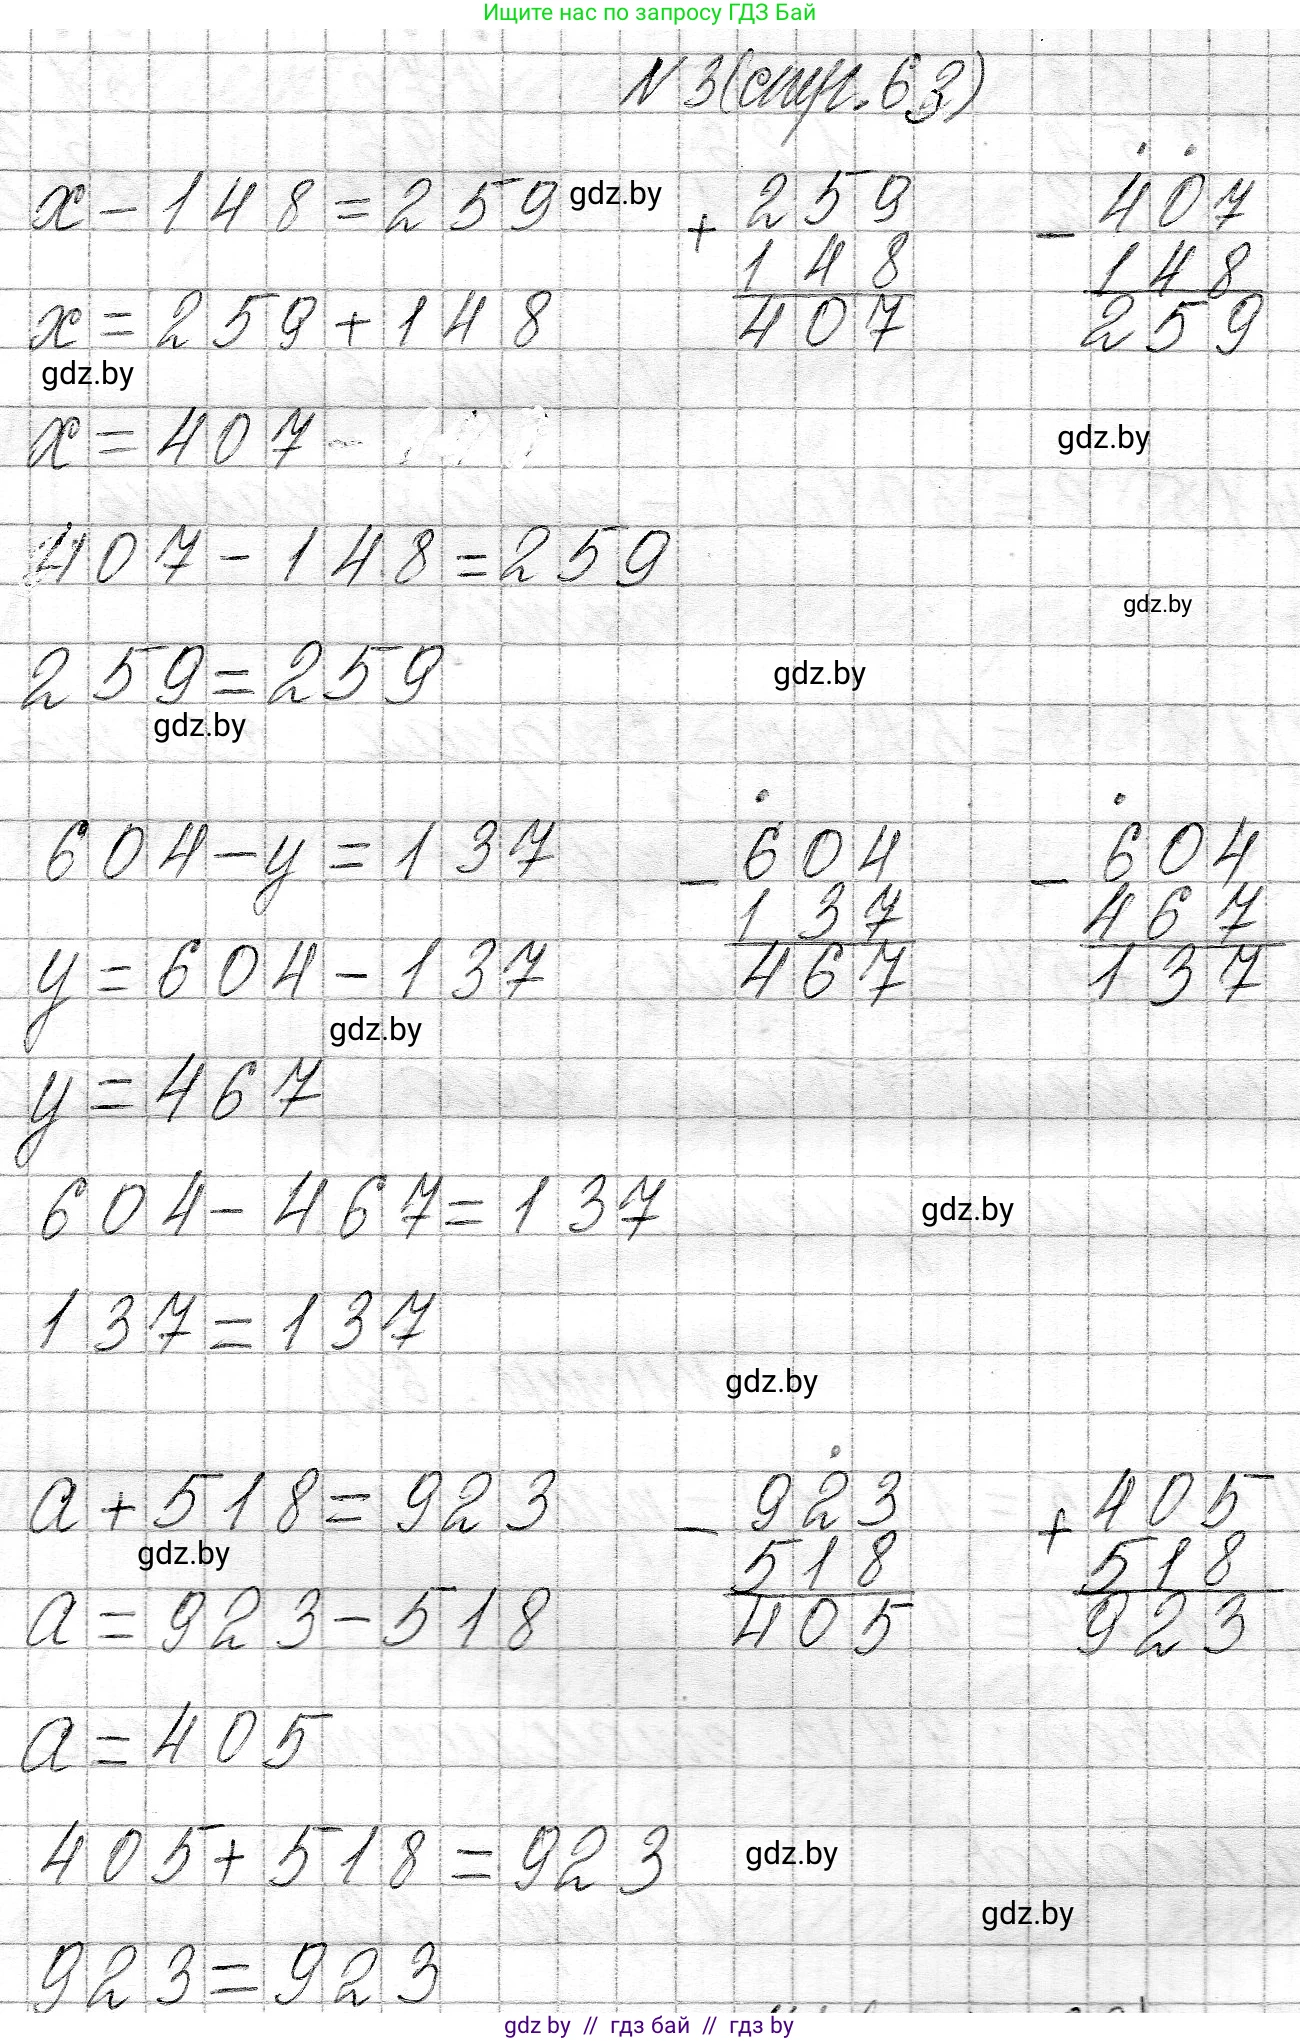 Ищите нас по запросу ГДЗ Бай
N 3 (стр. 63)
x - 148 = 259 gdz.by
+ 259
148
407
- 407
148
259
x = 259 + 148
gdz.by
x = 407
gdz.by
407 - 148 = 259
gdz.by
259 = 259
gdz.by
gdz.by
604 - y = 137
- 604
137
467
- 604
467
137
y = 604 - 137
gdz.by
y = 467
604 - 467 = 137
gdz.by
137 = 137
gdz.by
a + 518 = 923
- 923
518
405
+ 405
518
923
gdz.by
a = 923 - 518
a = 405
405 + 518 = 923
gdz.by
gdz.by
923 = 923
gdz by // гдз бай // гдз by